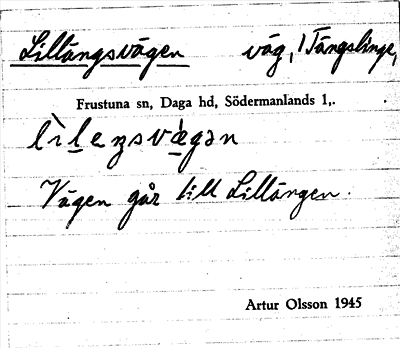 Lillängsvägen väg, i Tängslinge,
Frustuna sn, Daga hd, Södermanlands l,.
Vägen går till Lillängen.
Artur Olsson 1945